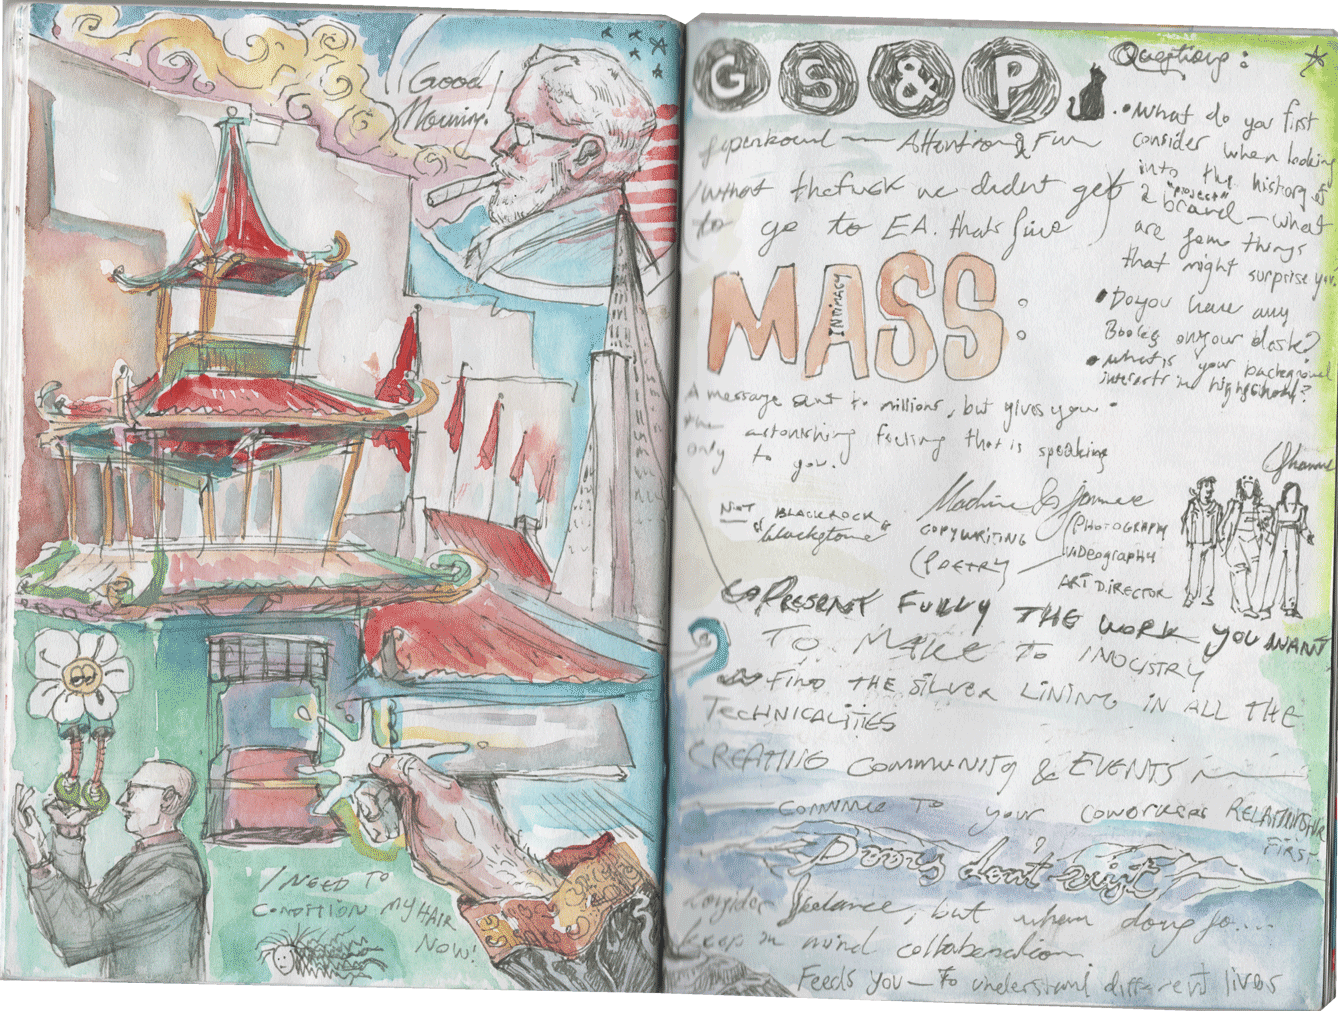 Good
Morning!
I NEED TO
CONDITION MY HAIR
NOW!
GS&P
Superbowl — Attention & Fun
(what the fuck we didnt get
to go to EA. thats fine)
MASS:
INTIMACY
A message sent to millions, but gives you
the astonishing feeling that is speaking
only to you.
NOT BLACKROCK
"blackstone"
COPYWRITING
(POETRY
(PHOTOGRAPHY
videography
ART DIRECTOR
PRESENT FULLY THE WORK YOU WANT
TO MAKE TO INDUSTRY
FIND THE SILVER LINING IN ALL THE
TECHNICALITIES
CREATING COMMUNITY & EVENTS
COMMUNE TO your COWORKERS RELATIONSHIP
FIRST
Doors don't exist
consider freelance, but when doing so....
keep in mind collaboration.
Feeds you — to understand different lives
Questions:
• What do you first
consider when looking
into the history of
a "project"
brand — what
are some things
that might surprise you.
• Do you have any
Books on your desk?
• what is your background
interest in highschool?